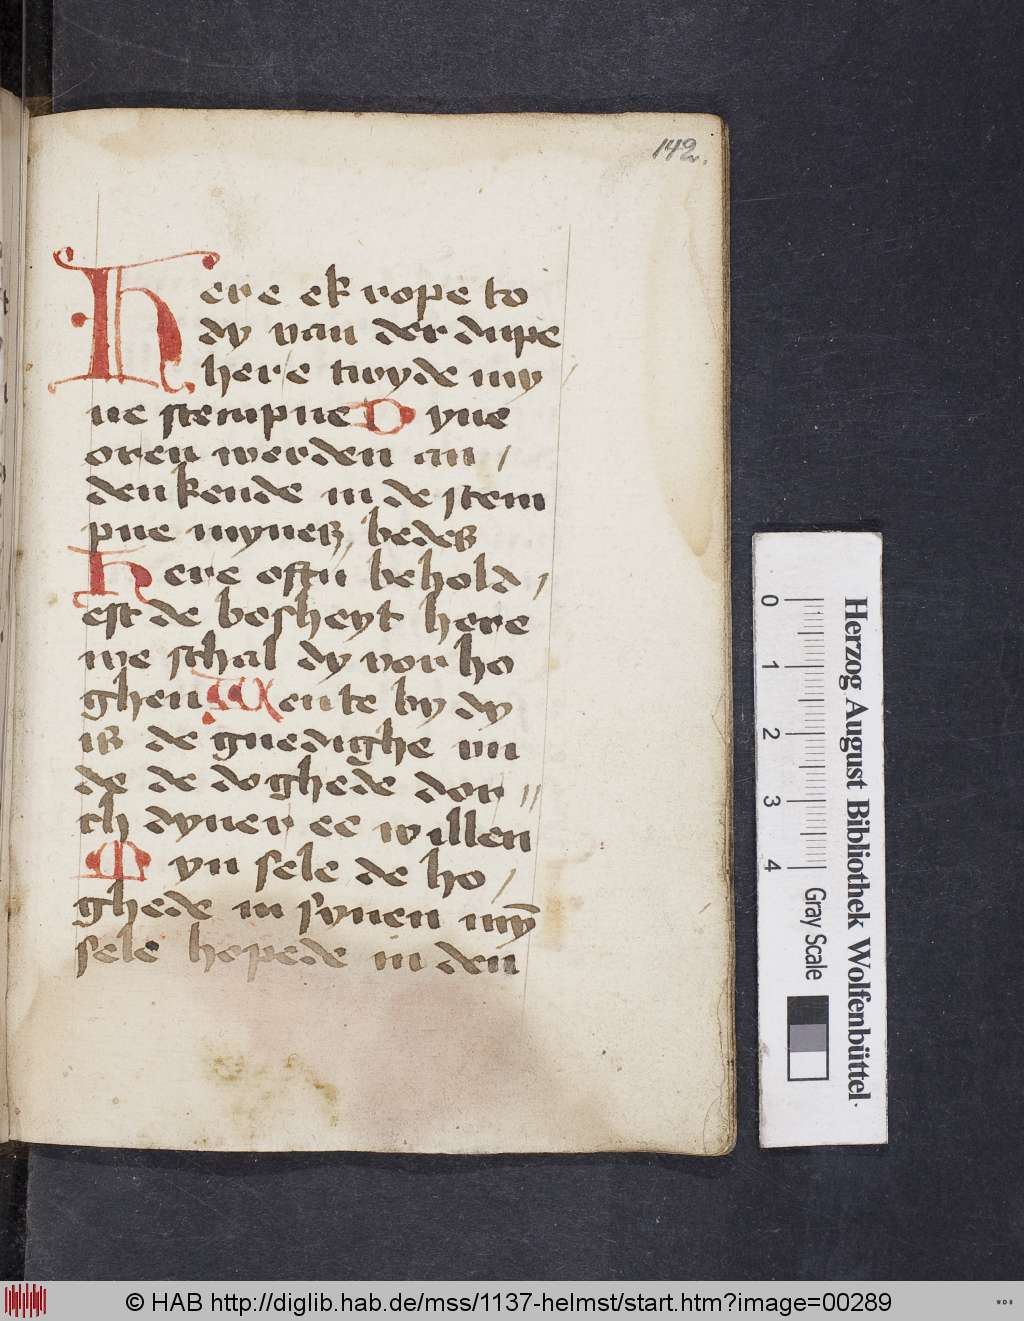 142.
Here ek rope to
dy van der dupe
here twyde my /
ne stempne Dyne
oren werden an /
denkende in de stem
pne mynes bedes
Here oftu behold /
est de bosheyt here
we schal dy vor ho
ghen Wente by dy
is de gnedighe vn
de de doghede dor //
ch dyner ee willen
Myn sele de ho /
ghede in synen my̅
sele hopede in den
0 1 2 3 4
Gray Scale
Herzog August Bibliothek Wolfenbüttel
© HAB http://diglib.hab.de/mss/1137-helmst/start.htm?image=00289